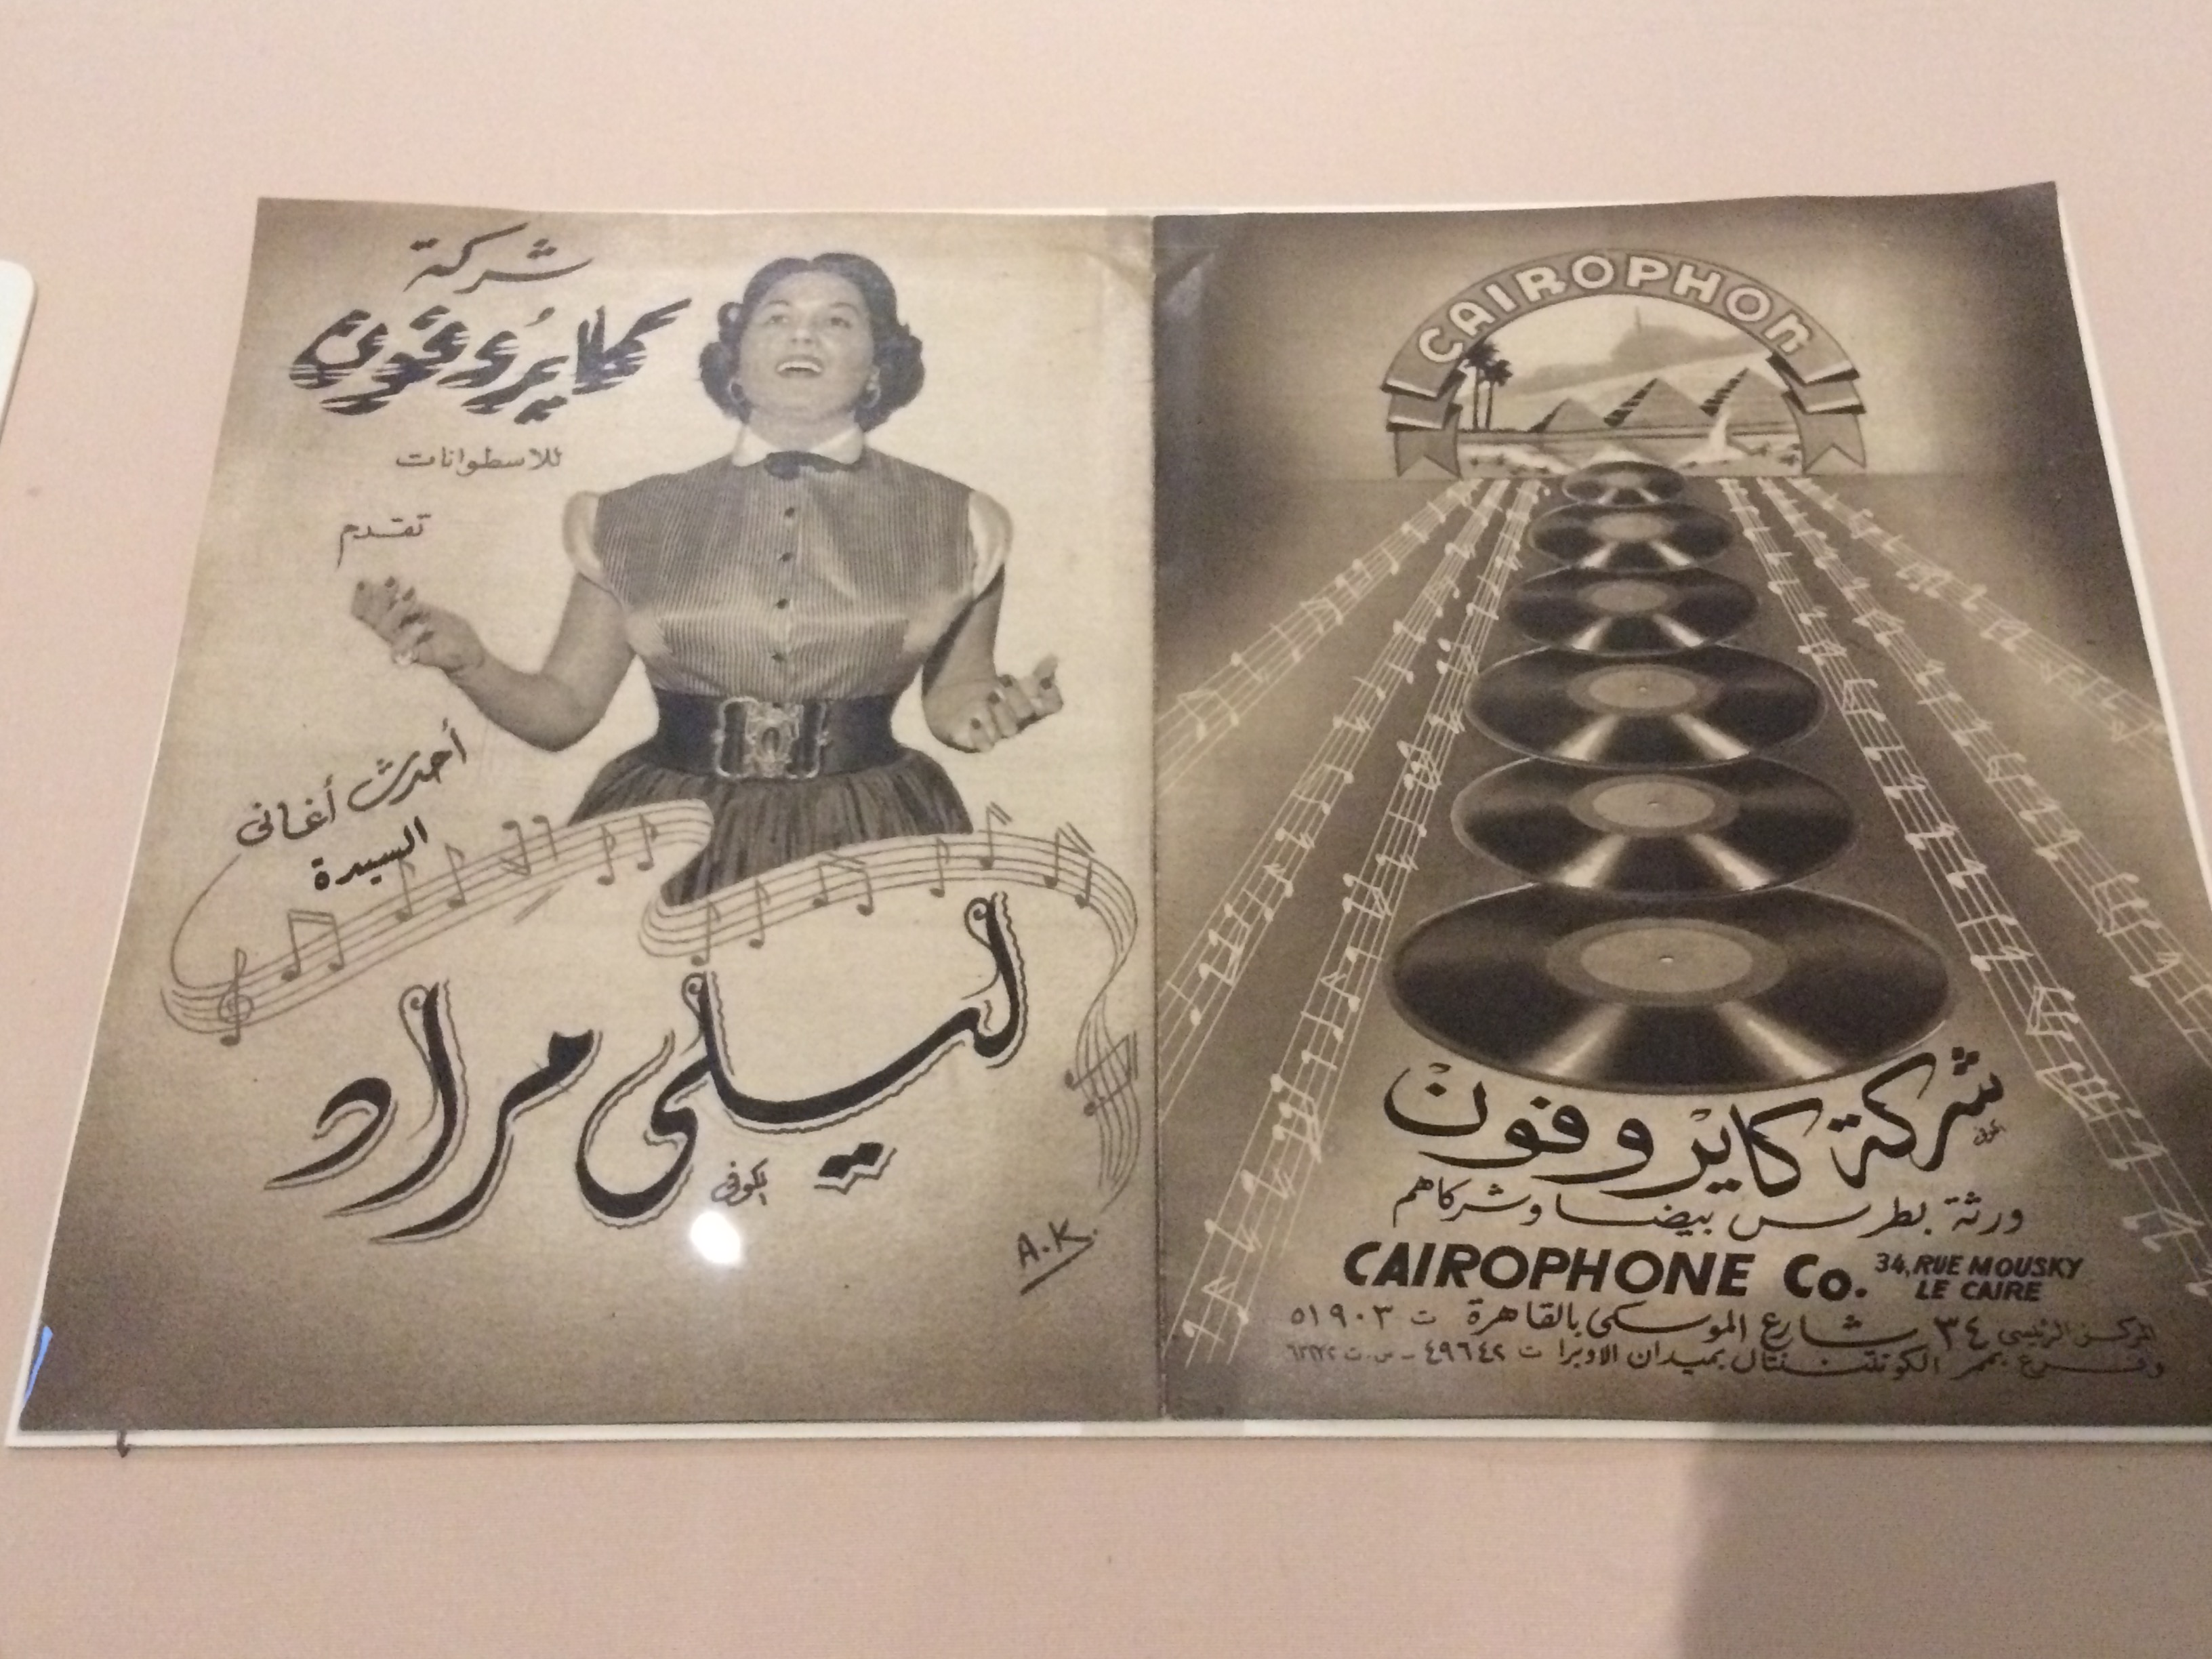 شركة
كايروفون
للاسطوانات
تقدم
أحدث أغانى
السيدة
ليلى مراد
الكوفى
A.K.
CAIROPHON
شركة كايروفون
الكوفى
ورثة بطرس بيضا وشركاهم
CAIROPHONE Co. 34, RUE MOUSKY
LE CAIRE
المركز الرئيسى ٣٤ شارع الموسكى بالقاهرة ت ٥١٩٠٣
وفرع بممر الكونتننتال بميدان الاوبرا ت ٤٩٦٤٢ - س.ت